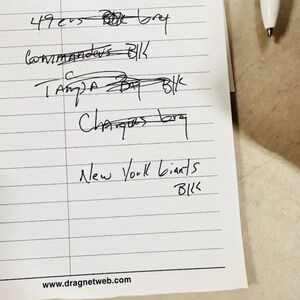 49ers Blk Grey
Commanders Blk
Tampa Bay Blk
Chargers Grey
New York Giants
Blk
www.dragnetweb.com